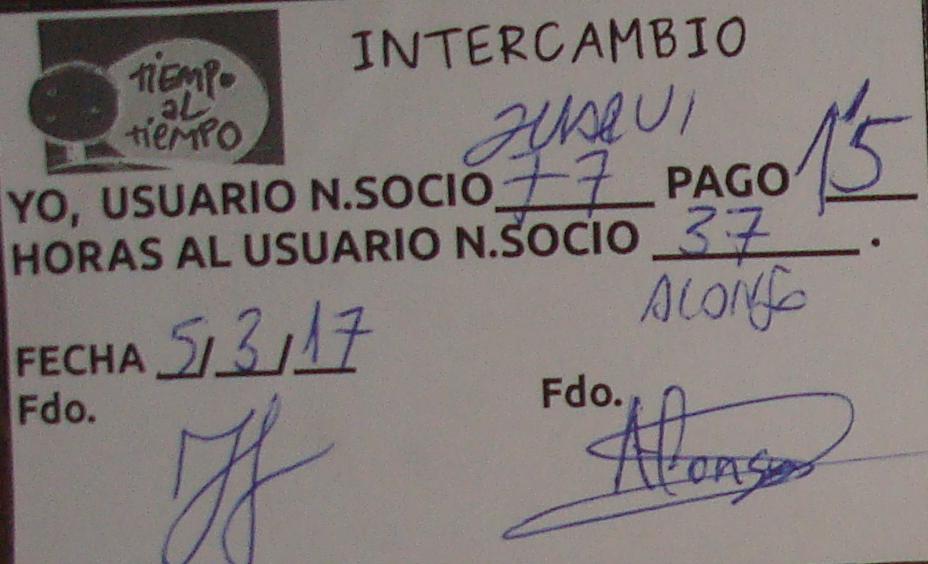 INTERCAMBIO
tiEMPo
aL
tiEMPO
JUSQUI
YO, USUARIO N.SOCIO 77 PAGO 1'5
HORAS AL USUARIO N.SOCIO 37.
ALONSO
FECHA 5/3/17
Fdo.
Fdo.
Alfonso